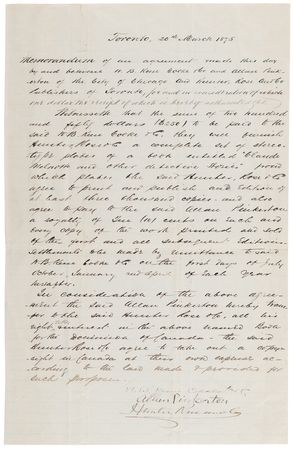 Toronto, 20th March 1875
Memorandum of an agreement made this day
by and between W. B. Keen Cooke & Co and Allan Pink-
erton of the City of Chicago and Hunter, Rose and Co
Publishers of Toronto, for and in consideration of
one dollar the receipt of which is hereby acknowledged
Witnesseth that the sum of two hundred
and fifty dollars $250 to be paid to the
said W B Keen Cooke & Co, they will
Hunter Rose & Co a complete set of stereo-
type plates of a book entitled Claude
Melnotte and other detective stories from
which plates the said Hunter, Rose & Co
agree to print and publish and edition of
at least three thousand copies and also
agree to pay to the said Allan Pinkerton
a royalty of ten cents on each and
every copy of the work printed and sold
of this and all subsequent editions
Settlements to be made by remittance to said
W. B. Keen Cooke & Co on the first days of July
October, January and April of each year
hereafter.
In consideration of the above agree-
ment the said Allan Pinkerton hereby
to the said Hunter Rose & Co, all his
right interest in the above named Book
for the Dominion of Canada - the said
Hunter Rose & Co agree to take out a copy-
right in Canada at their own expense ac-
cording to the law made & provided for
such purpose.
Allan Pinkerton
Hunter Rose and Co